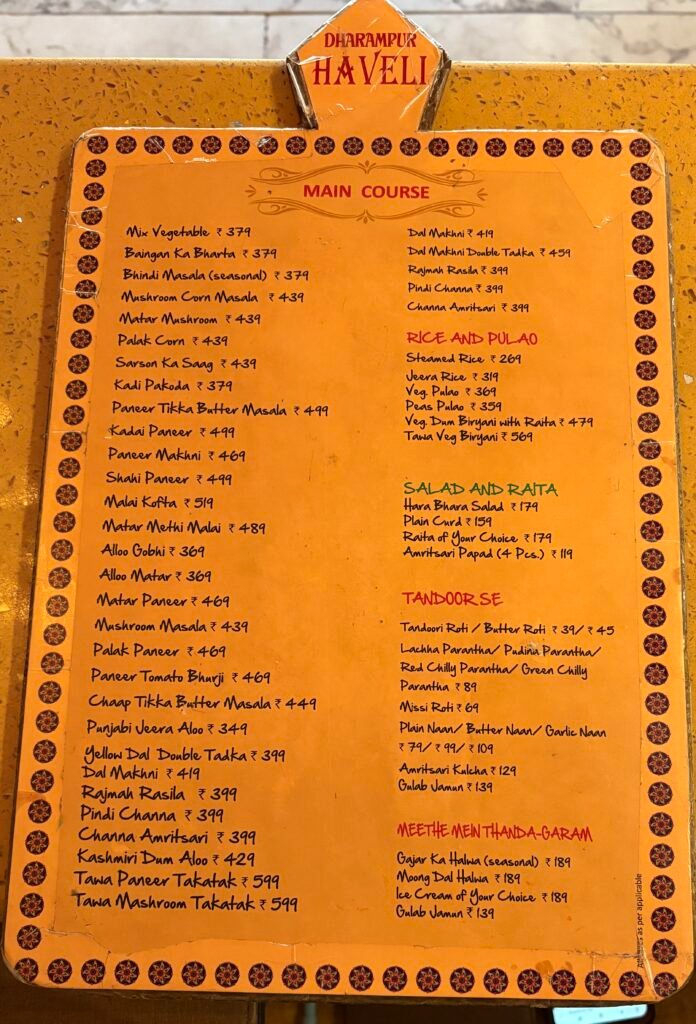 DHARAMPUR
HAVELI
MAIN COURSE
Mix Vegetable ₹ 379
Baingan Ka Bharta ₹ 379
Bhindi Masala (seasonal) ₹ 379
Mushroom Corn Masala ₹ 439
Matar Mushroom ₹ 439
Palak Corn ₹ 439
Sarson Ka Saag ₹ 439
Kadi Pakoda ₹ 379
Paneer Tikka Butter Masala ₹ 499
Kadai Paneer ₹ 499
Paneer Makhni ₹ 469
Shahi Paneer ₹ 499
Malai Kofta ₹ 519
Matar Methi Malai ₹ 489
Alloo Gobhi ₹ 369
Alloo Matar ₹ 369
Matar Paneer ₹ 469
Mushroom Masala ₹ 439
Palak Paneer ₹ 469
Paneer Tomato Bhurji ₹ 469
Chaap Tikka Butter Masala ₹ 449
Punjabi Jeera Aloo ₹ 349
Yellow Dal Double Tadka ₹ 399
Dal Makhni ₹ 419
Rajmah Rasila ₹ 399
Pindi Channa ₹ 399
Channa Amritsari ₹ 399
Kashmiri Dum Aloo ₹ 429
Tawa Paneer Takatak ₹ 599
Tawa Mashroom Takatak ₹ 599
Dal Makhni ₹ 419
Dal Makhni Double Tadka ₹ 459
Rajmah Rasila ₹ 399
Pindi Channa ₹ 399
Channa Amritsari ₹ 399
RICE AND PULAO
Steamed Rice ₹ 269
Jeera Rice ₹ 319
Veg. Pulao ₹ 369
Peas Pulao ₹ 359
Veg. Dum Biryani with Raita ₹ 479
Tawa Veg Biryani ₹ 569
SALAD AND RAITA
Hara Bhara Salad ₹ 179
Plain Curd ₹ 159
Raita of Your Choice ₹ 179
Amritsari Papad (4 Pcs.) ₹ 119
TANDOOR SE
Tandoori Roti / Butter Roti ₹ 39/ ₹ 45
Lachha Parantha/ Pudina Parantha/
Red Chilly Parantha/ Green Chilly
Parantha ₹ 89
Missi Roti ₹ 69
Plain Naan/ Butter Naan/ Garlic Naan
₹ 79/ ₹ 99/ ₹ 109
Amritsari Kulcha ₹ 129
Gulab Jamun ₹ 139
MEETHE MEIN THANDA-GARAM
Gajar Ka Halwa (seasonal) ₹ 189
Moong Dal Halwa ₹ 189
Ice Cream of Your Choice ₹ 189
Gulab Jamun ₹ 139
as per applicable